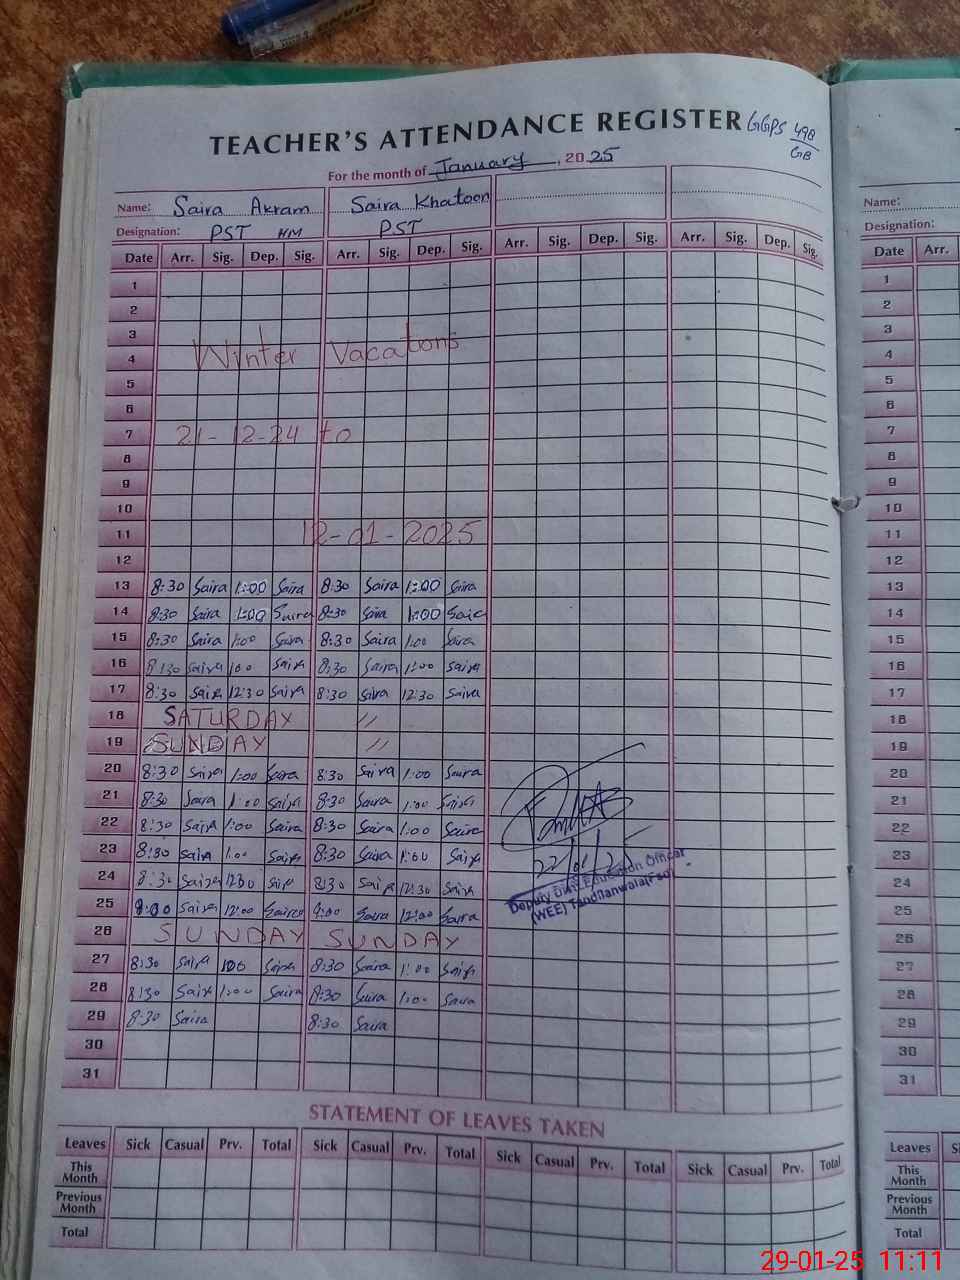 TEACHER'S ATTENDANCE REGISTER GGPS 498/GB
For the month of January, 2025
Name: Saira Akram Saira Khatoon
Designation: PST HM PST
Date Arr. Sig. Dep. Sig. Arr. Sig. Dep. Sig. Arr. Sig. Dep. Sig. Arr. Sig. Dep. Sig.
1
2
3
4 Winter Vacations
5
6
7 21-12-24 to
8
9
10
11 12-01-2025
12
13 8:30 Saira 1:00 Saira 8:30 Saira 1:00 Saira
14 8:30 Saira 1:00 Saira 8:30 Saira 1:00 Saira
15 8:30 Saira 1:00 Saira 8:30 Saira 1:00 Saira
16 8:30 Saira 1:00 Saira 8:30 Saira 1:00 Saira
17 8:30 Saira 12:30 Saira 8:30 Saira 12:30 Saira
18 SATURDAY //
19 SUNDAY //
20 8:30 Saira 1:00 Saira 8:30 Saira 1:00 Saira
21 8:30 Saira 1:00 Saira 8:30 Saira 1:00 Saira
22 8:30 Saira 1:00 Saira 8:30 Saira 1:00 Saira
23 8:30 Saira 1:00 Saira 8:30 Saira 1:00 Saira
22/01/25
24 8:30 Saira 1230 Saira 8:30 Saira 12:30 Saira
Deputy Distt. Education Officer
25 9:00 Saira 12:00 Saira 9:00 Saira 12:00 Saira
(WEE) Tandlianwala(Fsd)
26 SUNDAY SUNDAY
27 8:30 Saira 100 Saira 8:30 Saira 1:00 Saira
28 8:30 Saira 1:00 Saira 8:30 Saira 1:00 Saira
29 8:30 Saira 8:30 Saira
30
31
STATEMENT OF LEAVES TAKEN
Leaves Sick Casual Prv. Total Sick Casual Prv. Total Sick Casual Prv. Total Sick Casual Prv. Total
This Month
Previous Month
Total
Name:
Designation:
Date Arr.
1
2
3
4
5
6
7
8
9
10
11
12
13
14
15
16
17
18
19
20
21
22
23
24
25
26
27
28
29
30
31
Leaves
This Month
Previous Month
Total
29-01-25 11:11